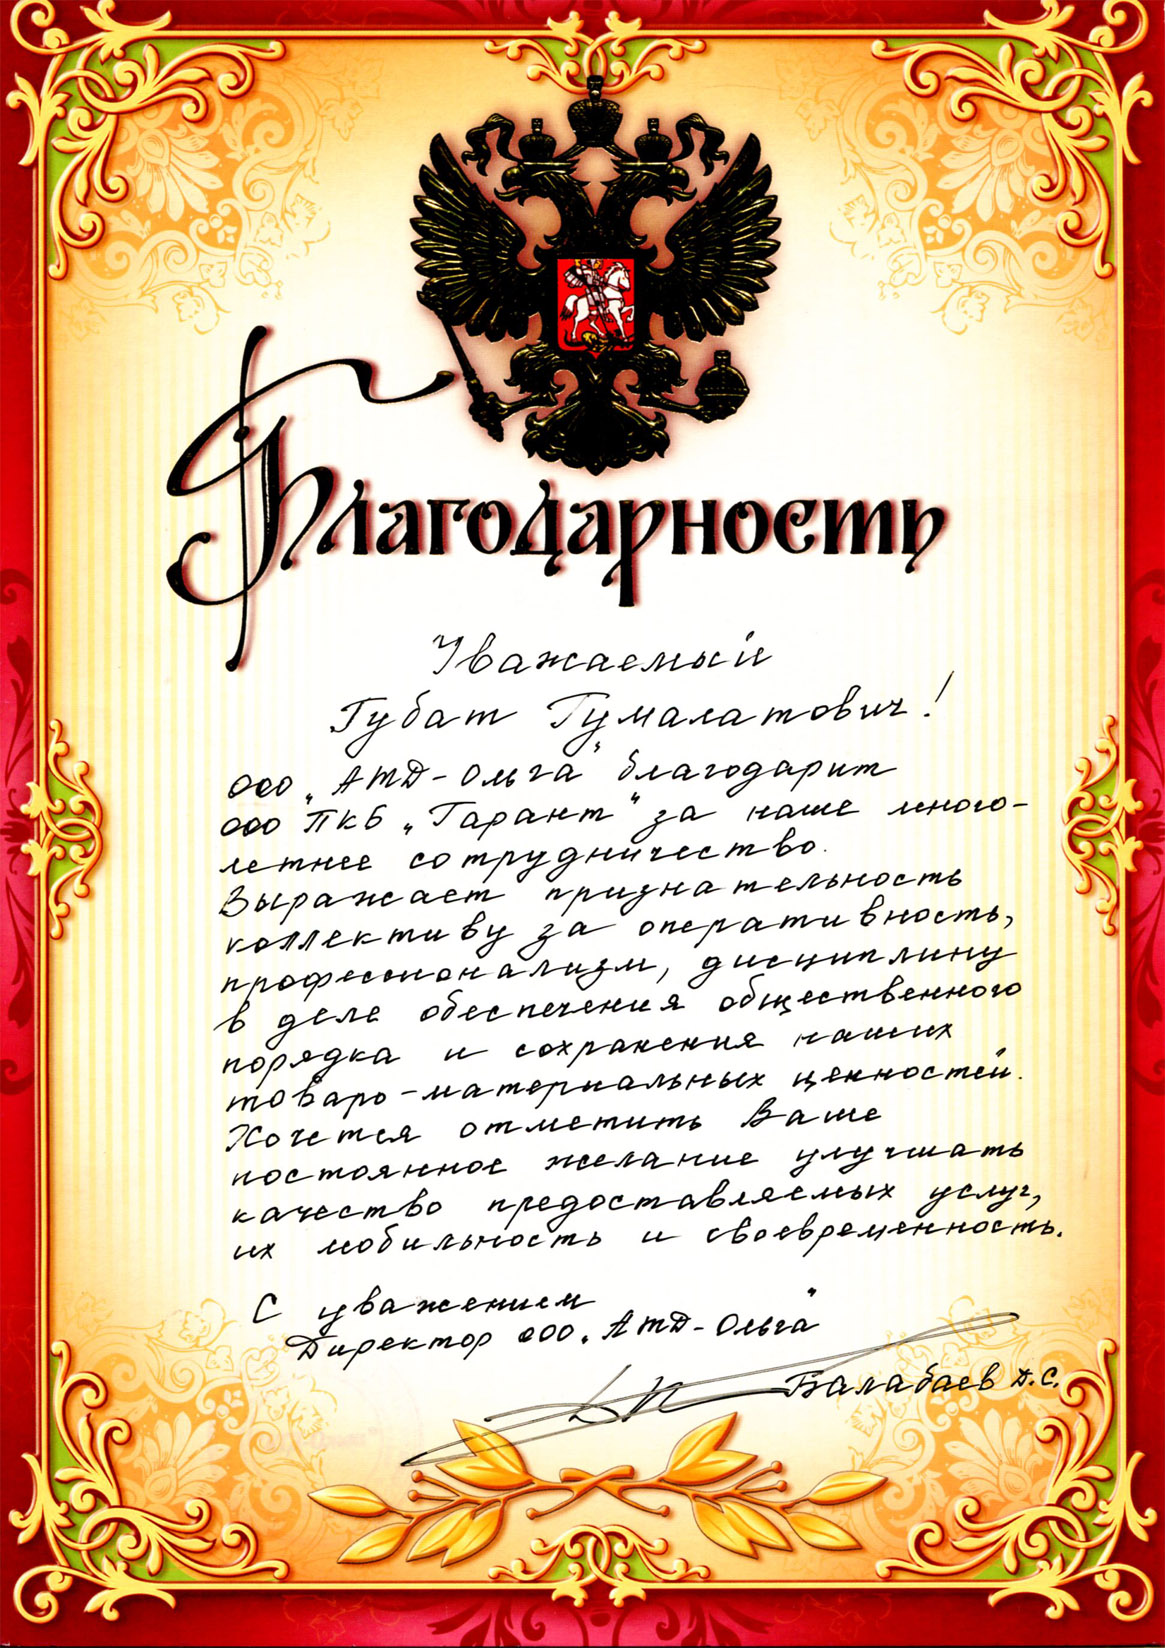 Благодарность
Уважаемый
Губат Гумалатович!
ООО „АТД-Ольга" благодарит
ООО ПКБ „Гарант" за наше много-
летнее сотрудничество.
Выражает признательность
коллективу за оперативность,
профессионализм, дисциплину
в деле обеспечения общественного
порядка и сохранения наших
товаро-материальных ценностей.
Хочется отметить Ваше
постоянное желание улучшать
качество предоставляемых услуг,
их мобильность и своевременность.
С уважением
Директор ООО „АТД-Ольга"
Балабаев Д.С.